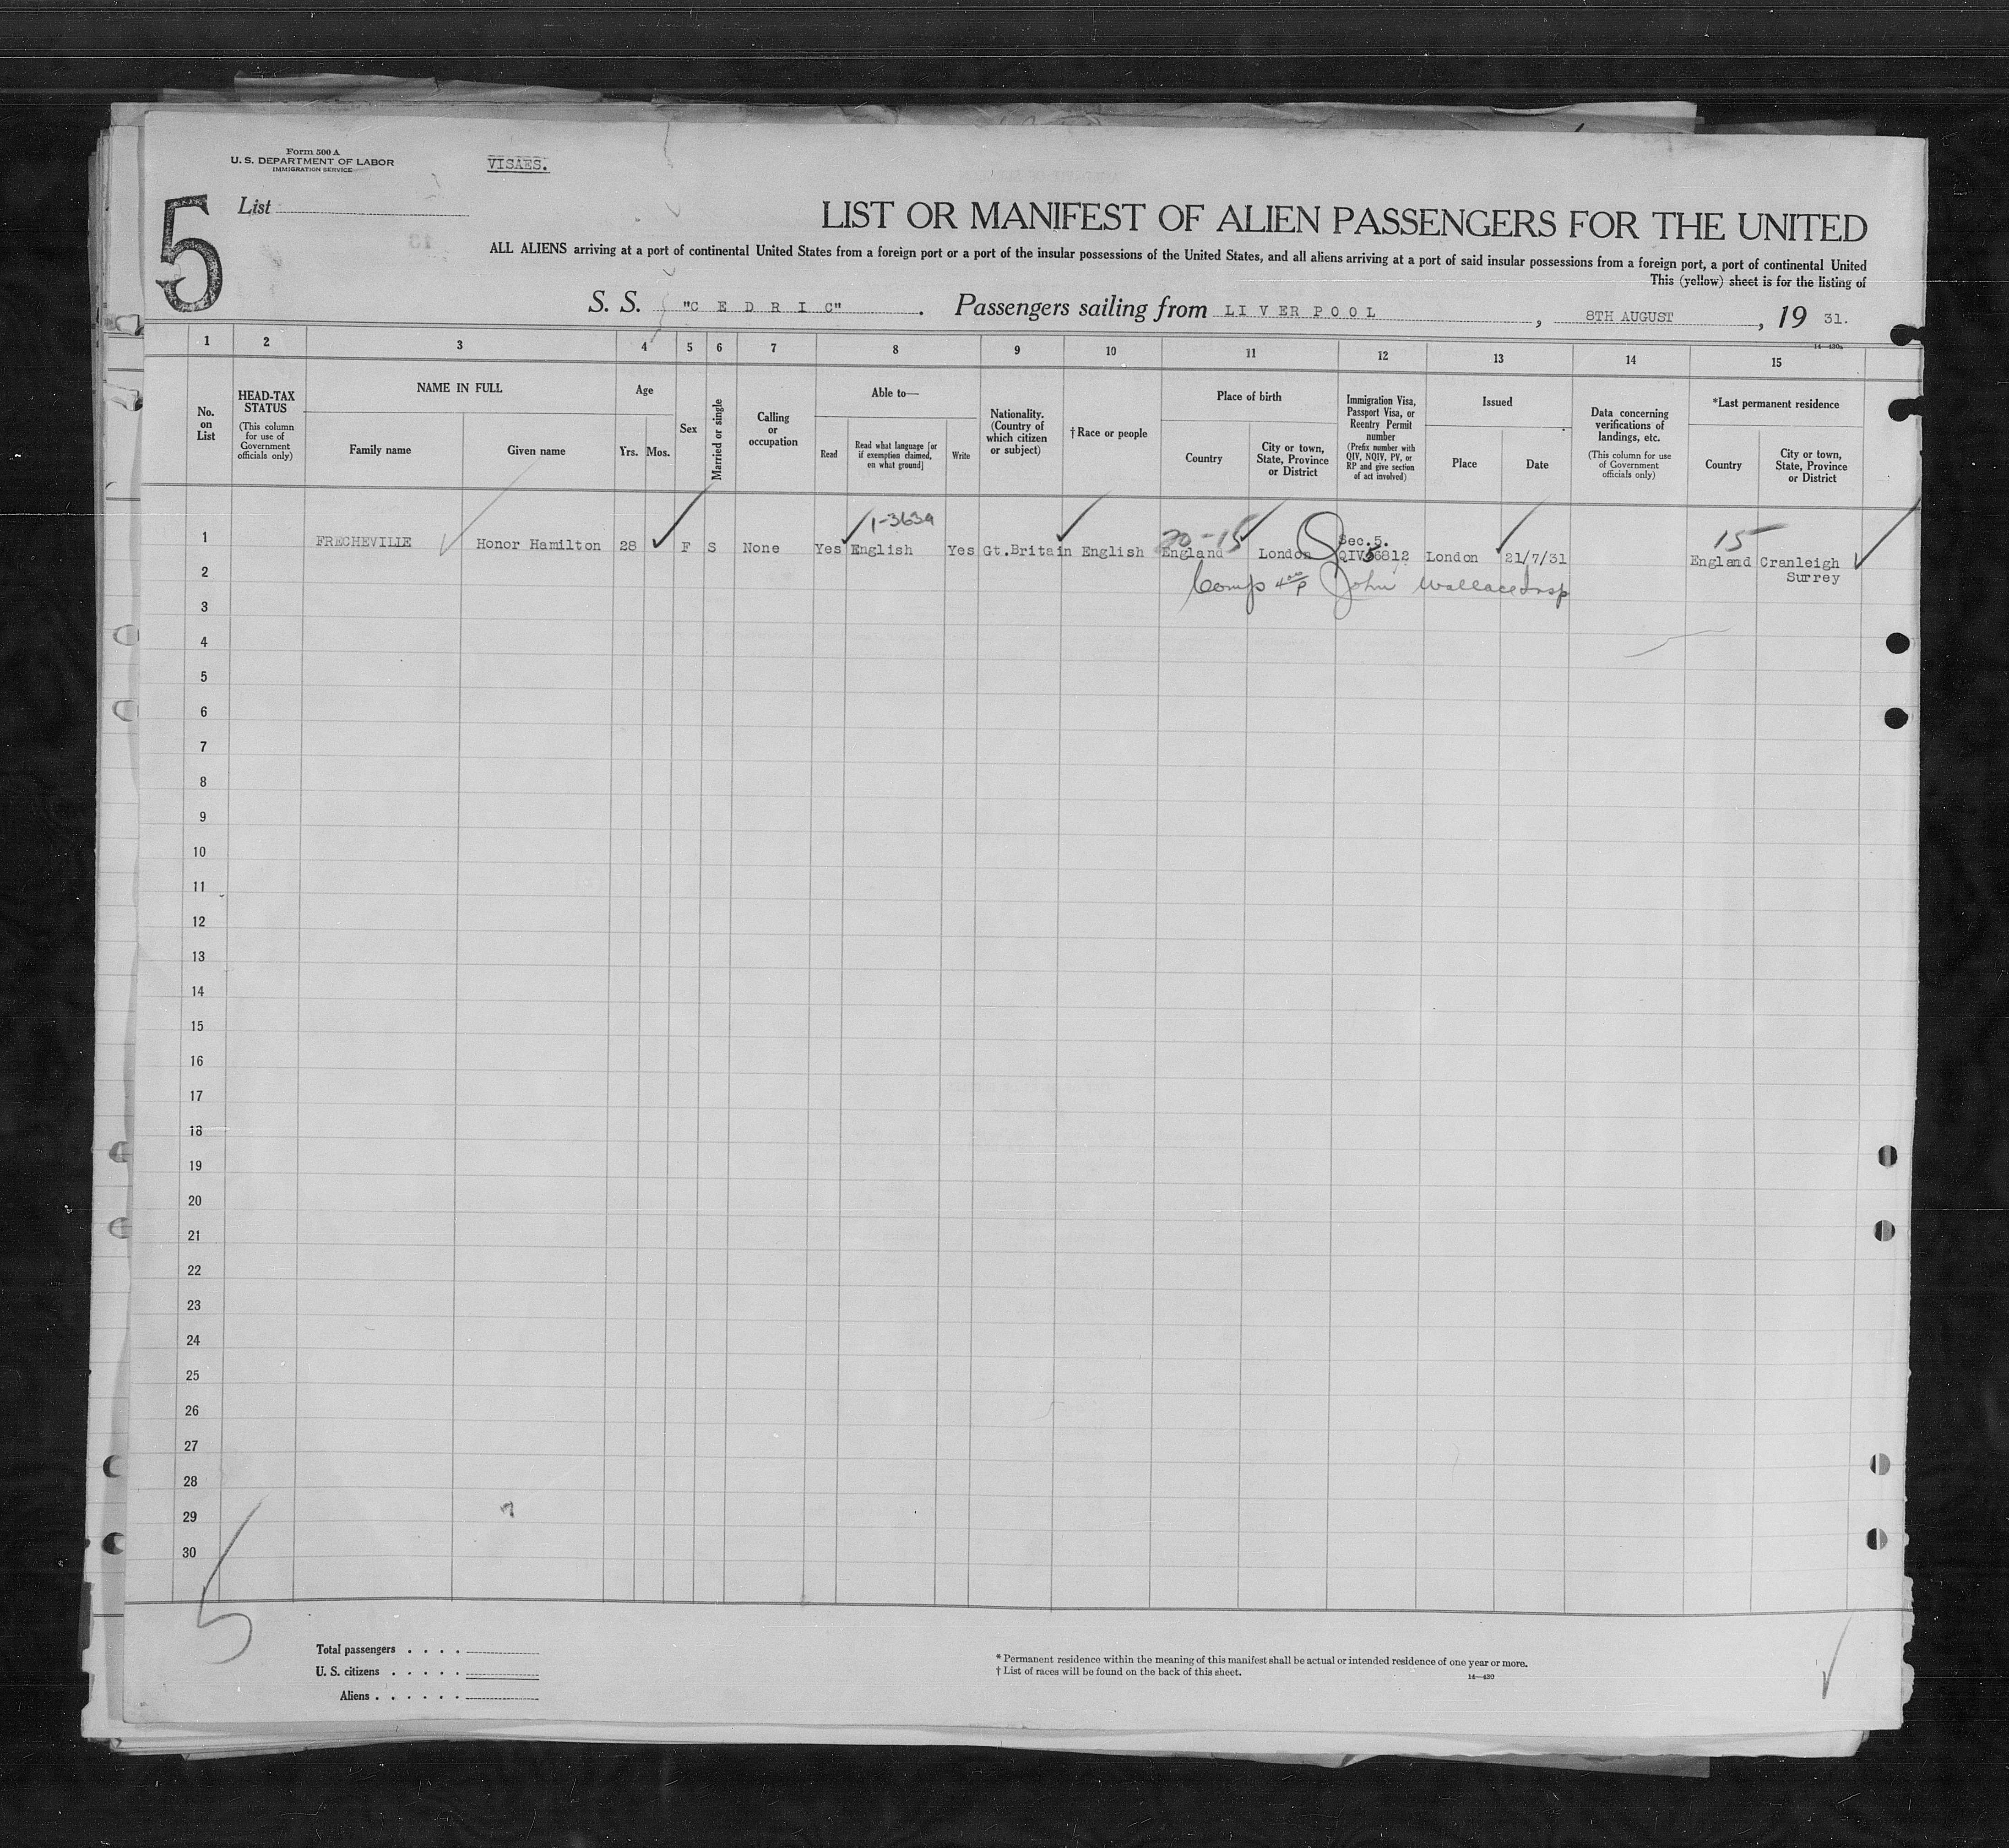 Form 500 A
U. S. DEPARTMENT OF LABOR
IMMIGRATION SERVICE
VISAES.
5
List
LIST OR MANIFEST OF ALIEN PASSENGERS FOR THE UNITED
ALL ALIENS arriving at a port of continental United States from a foreign port or a port of the insular possessions of the United States, and all aliens arriving at a port of said insular possessions from a foreign port, a port of continental United
This (yellow) sheet is for the listing of
S. S. "C E D R I C". Passengers sailing from L I V E R P O O L, 8TH AUGUST, 19 31.
14—430a
1 2 3 4 5 6 7 8 9 10 11 12 13 14 15
No. on List
HEAD-TAX STATUS
(This column for use of Government officials only)
NAME IN FULL
Family name
Given name
Age
Yrs.
Mos.
Sex
Married or single
Calling or occupation
Able to—
Read
Read what language [or if exemption claimed, on what ground]
Write
Nationality. (Country of which citizen or subject)
†Race or people
Place of birth
Country
City or town, State, Province or District
Immigration Visa, Passport Visa, or Reentry Permit number
(Prefix number with QIV, NQIV, PV, or RP and give section of act involved)
Issued
Place
Date
Data concerning verifications of landings, etc.
(This column for use of Government officials only)
*Last permanent residence
Country
City or town, State, Province or District
1-3639
20-15
Sec.5.
15
1 FRECHEVILLE Honor Hamilton 28 F S None Yes English Yes Gt.Britain English England London London 21/7/31 England Cranleigh
Surrey
Comp John Wallace Insp
2
3
4
5
6
7
8
9
10
11
12
13
14
15
16
17
18
19
20
21
22
23
24
25
26
27
28
29
30
5
Total passengers . . . .
U. S. citizens . . . . .
Aliens . . . . . .
* Permanent residence within the meaning of this manifest shall be actual or intended residence of one year or more.
† List of races will be found on the back of this sheet.
14—430